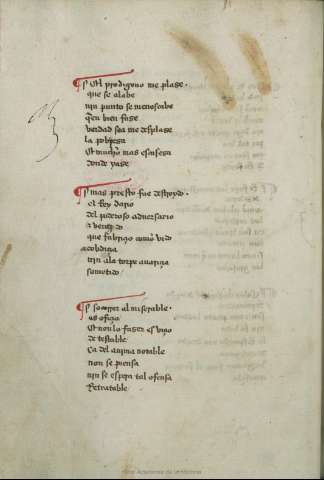 El prodigo no me plase
que se alabe
nin punto se menoscabe
quien bien fase
verdad sea me desplase
la pobresa
Et mucho mas escasesa
donde yase
Mas presto fue destroydo
el Rey dario
del poderoso aduersario
que fabriçio como vido
acobdiçia
nin ala torpe auariçia
sometido
Socorrer al miserable
es ofiçio
Et non lo faser es viçio
detestable
Ca del anima notable
non se piensa
nin se espera tal ofensa
Retratable